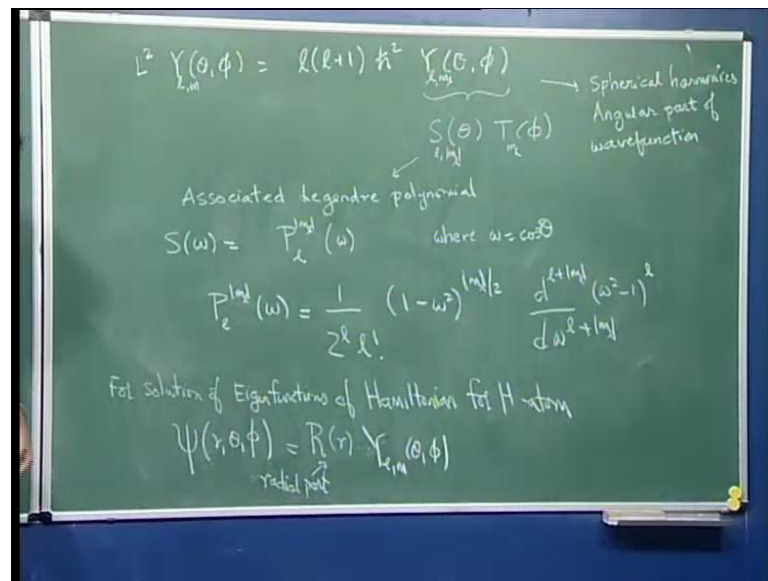 L² Y_{l,m}(θ,φ) = l(l+1) ħ² Y_{l,m_l}(θ,φ) → Spherical harmonics
Angular part of
wavefunction
S_{l,|m_l|}(θ) T_{m_l}(φ)
Associated Legendre polynomial
S(ω) = P_l^{|m_l|}(ω) where ω = cosθ
P_l^{|m_l|}(ω) = 1/(2^l l!) (1-ω²)^{|m_l|/2} d^{l+|m_l|}/dω^{l+|m_l|} (ω²-1)^l
For solution of Eigenfunctions of Hamiltonian for H-atom
Ψ(r,θ,φ) = R(r) Y_{l,m}(θ,φ)
radial part